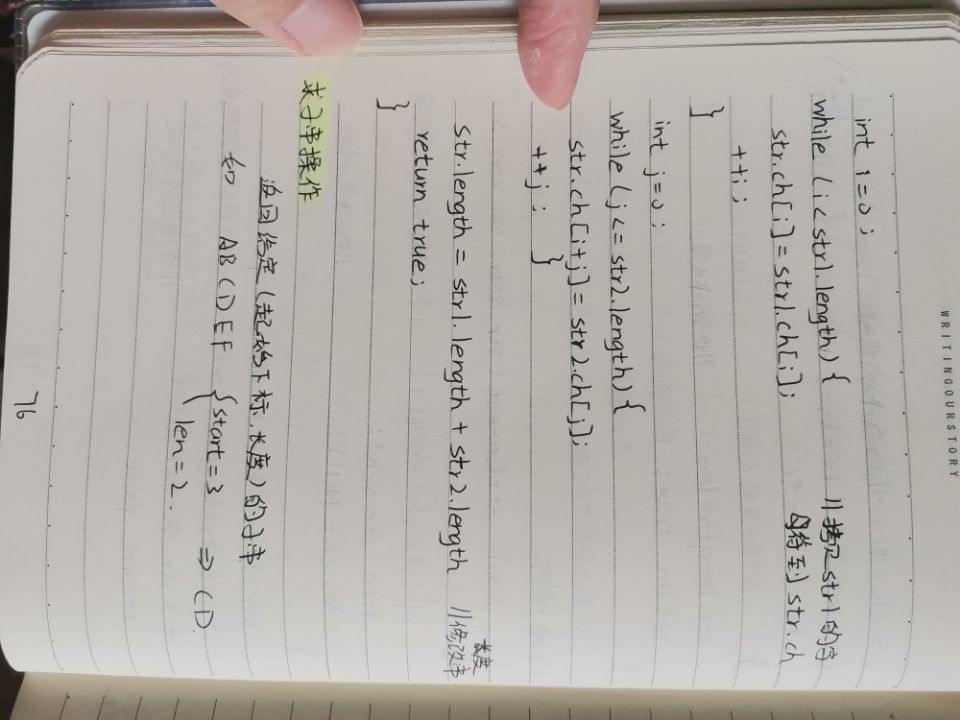 WRITINGOURSTORY
int i=0;
while (i<str1.length) {
str.ch[i]=str1.ch[i]; //拷贝str1的字
符到str.ch
++i;
}
int j=0;
while (j<=str2.length) {
str.ch[i+j]=str2.ch[j];
++j; }
str.length = str1.length + str2.length //修改串长度
return true;
}
求子串操作
返回给定(起始下标,长度)的子串
如 ABCDEF {start=3 ⇒ CD.
len=2.
76